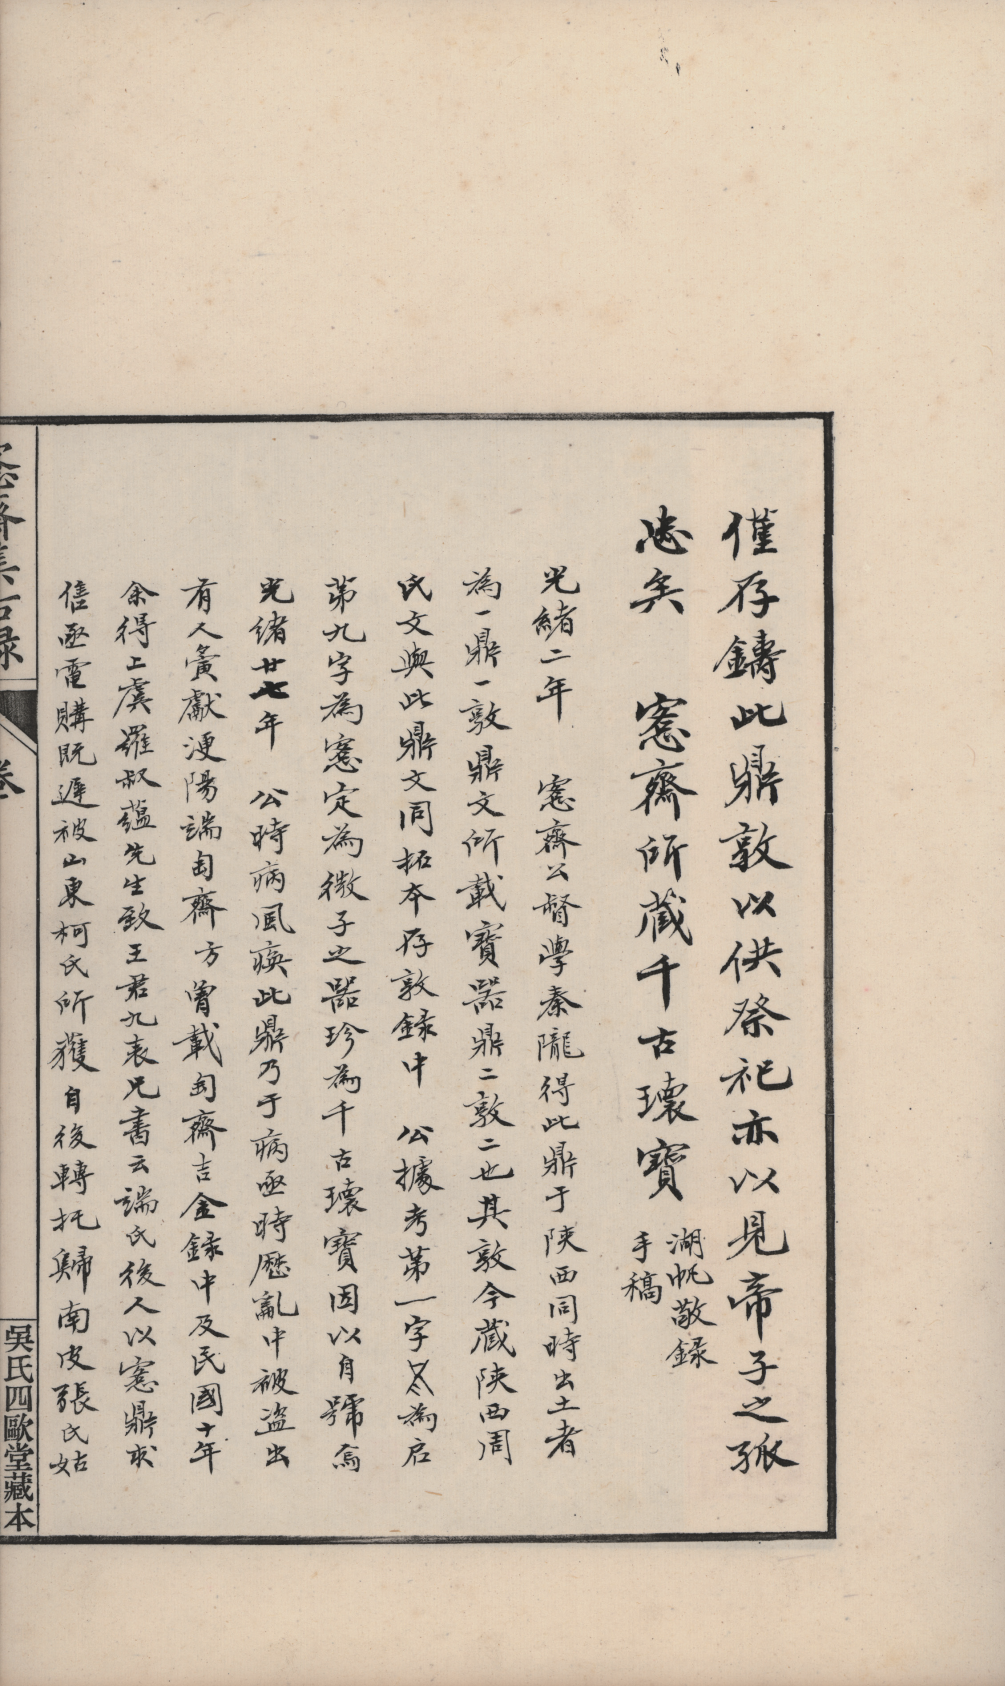 僅存鑄此鼎敦以供祭祀亦以見帝子之孤
忠矣 愙齋所藏千古瓌寶
湖帆敬錄
手稿
光緒二年 愙齋公督學秦隴得此鼎于陝西同時出土者
為一鼎一敦鼎文所載寶器鼎二敦二也其敦今藏陝西周
氏文與此鼎文同拓本存敦錄中 公據考第一字為启
第九字為愙定為微子之器珍為千古瓌寶因以自號焉
光緒廿七年 公時病風痪此鼎乃于病亟時歷亂中被盜出
有人賫獻浭陽端匋齋方曾載匋齋吉金錄中及民國十年
余得上虞羅叔蘊先生致王君九表兄書云端氏後人以愙鼎求
售亟電購旣遲被山東柯氏所獲自後轉托歸南皮張氏姑
愙齋集古錄
卷
吳氏四歐堂藏本